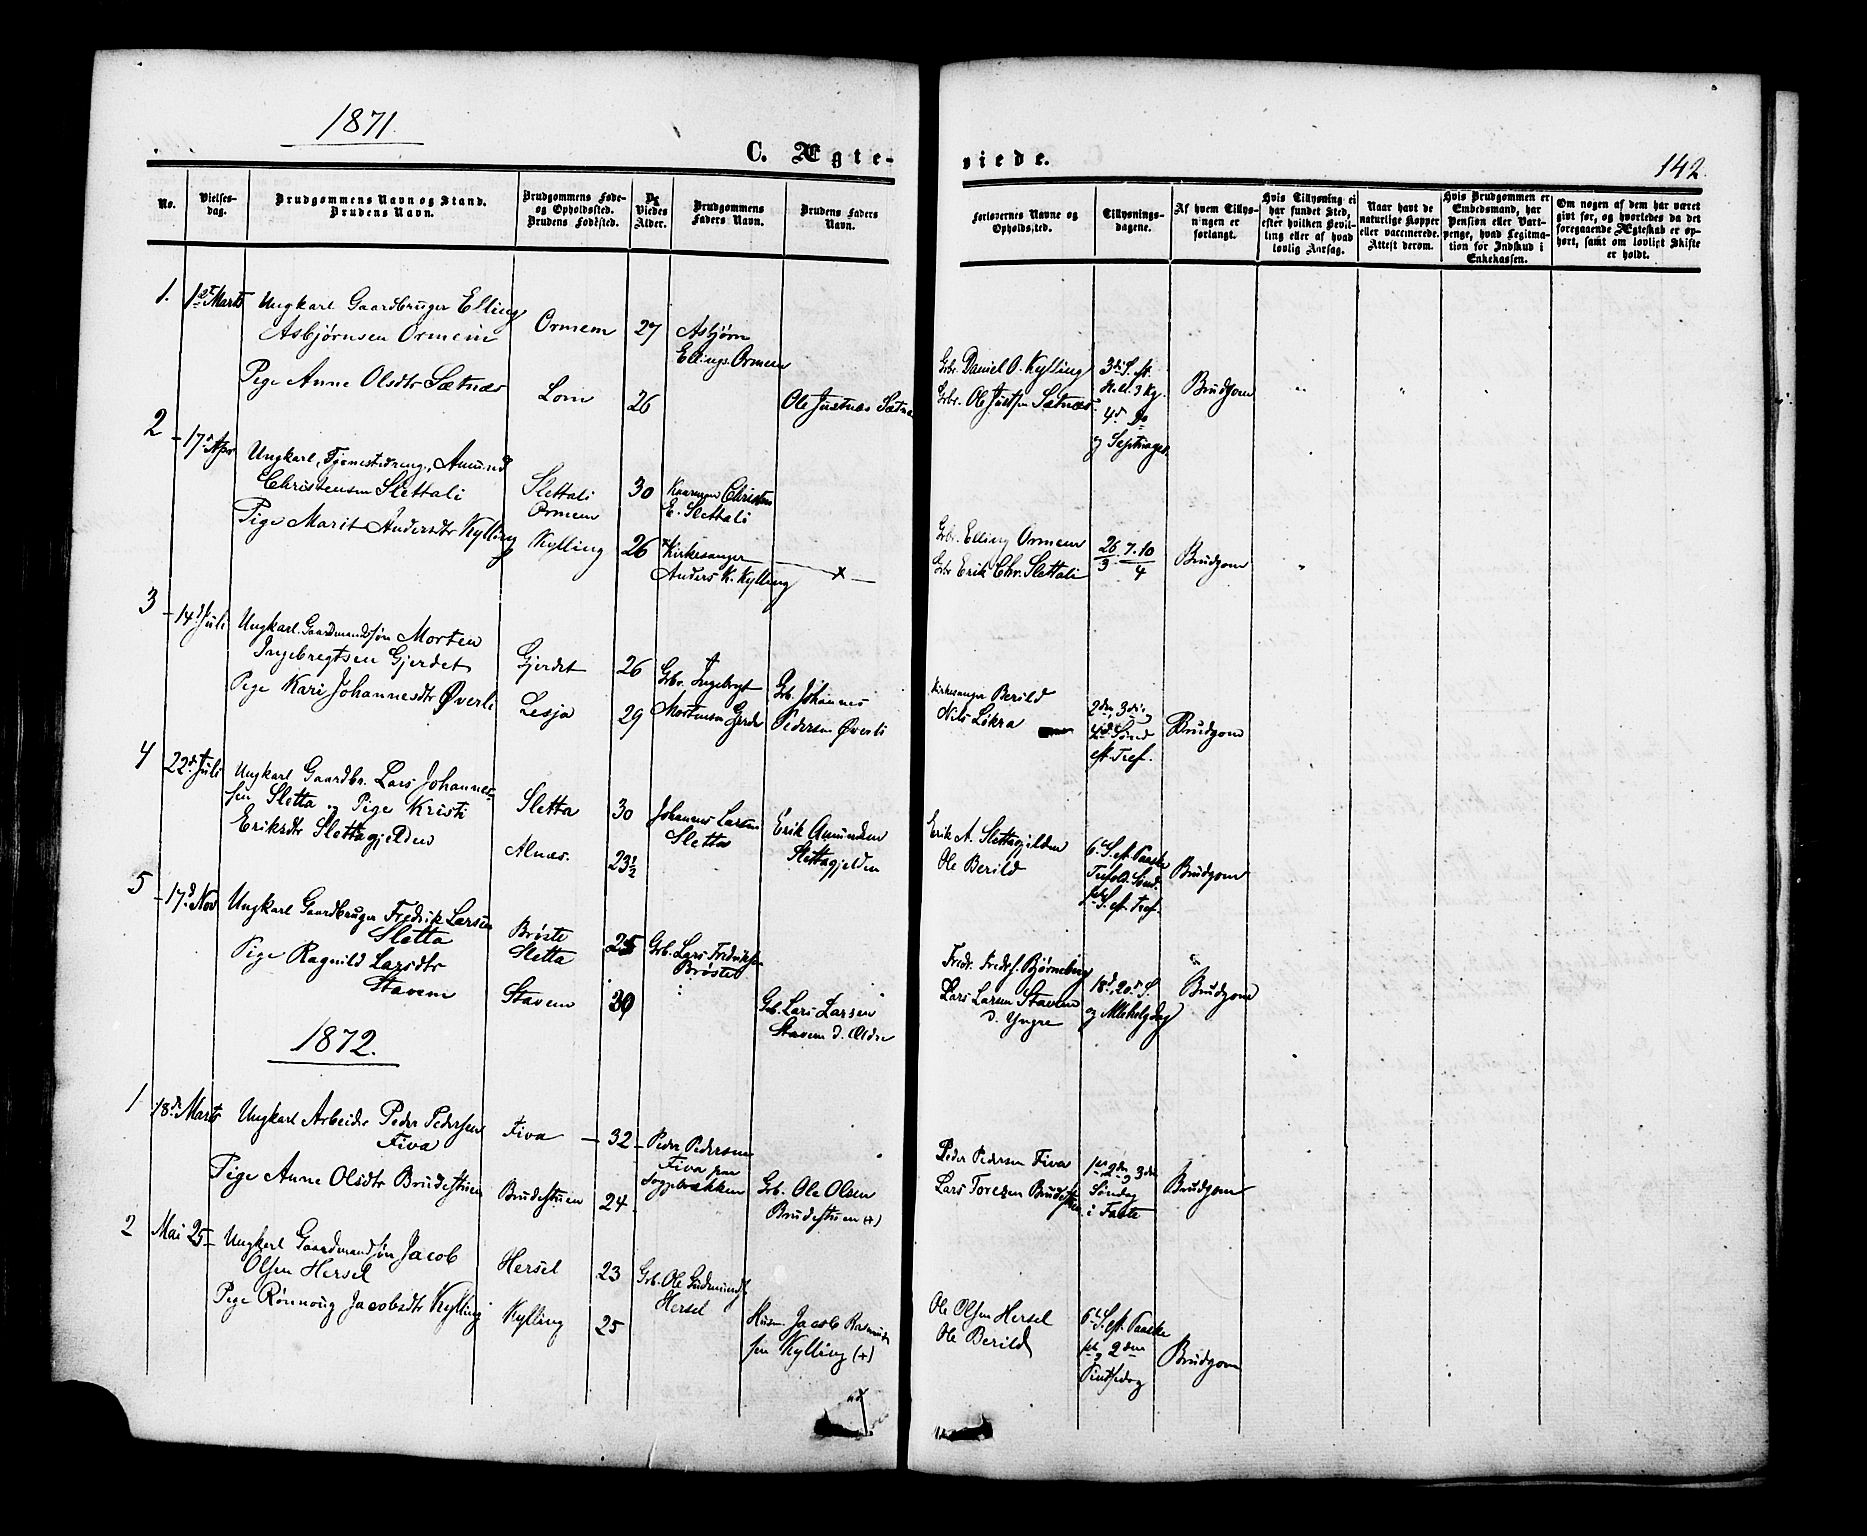 1871.
C. Ægte-
viede.
142.
No.
Vielses-
dag.
Brudgommens Navn og Stand.
Brudens Navn.
Brudgommens Føde-
og Opholdssted.
Brudens Fødested.
De
Viedes
Alder.
Brudgommens
Faders Navn.
Brudens Faders
Navn.
Forlovernes Navne og
Opholdssted.
Tillysnings-
dagene.
Af hvem Tillys-
ningen er
forlangt.
Hvis Tillysning ei
har fundet Sted,
efter hvilken Bevil-
ling eller af hvad
lovlig Aarsag.
Naar havt de
naturlige Kopper
eller vaccinerede.
Attest derom.
Hvis Brudgommen er
Embedsmand, har
Pension eller Vart-
penge, hvad Legitima-
tion for Indskud i
Enkekassen.
Om nogen af dem har været
gift før, og hvorledes da det
foregaaende Ægteskab er op-
hørt, samt om lovligt Skifte
er holdt.
1.
1ste Marts
Ungkarl Gaardbruger Elling
Asbjørnsen Ormem
Ormem
27
Asbjørn
Ellings. Ormem
Pige Anne Olsdtr Sætnæs
Lom
26
Ole Justnæs Sætnæs
Gbr. Daniel O. Kylling
Gbr. Ole Justsen Sætnæs
3die S. ef.
H. 3 Kg.
4de Do
og Septuages.
Brudgom
2
17de Apr
Ungkarl, Tjenestedreng, Amund
Christensen Slettali
Slettali
Ormem
30
Kaarmand Christen
E. Slettali
Pige Marit Andersdtr Kylling
Kylling
26
Kirkesanger
Anders K. Kylling
Gbr. Elling Ormem
Gbr Erik Chr. Slettali
26/3 7. 10/4
Brudgom
3
14de Juli
Ungkarl. Gaardmandssøn Morten
Ingebregtsen Gjerdet
Gjerdet
26
Gbr. Ingebregt
Mortensen Gjerde
Pige Kari Johannesdtr Øverli
Lesja
29
Gb. Johannes
Pedersen Øverli
Kirkesanger Berild
Nils Likra
2den, 3die,
4de Sønd
ef. Tref.
Brudgom
4
22de Juli
Ungkarl Gaardbr. Lars Johannes-
sen Sletta og Pige Kristi
Eriksdtr Slettagjelden
Sletta
30
Johannes Larsen
Sletta
Alnæs.
23½
Erik Amundsen
Slettagjelden
Erik A. Slettagjelden
Ole Berild
6te S. ef. Paaske
Trefold. Sønd.
1ste S. ef. Tref.
Brudgom
5
17de Nov
Ungkarl Gaardbruger Fredrik Larsen
Sletta
Brøste
Sletta
25
Gb. Lars Fredriksen
Brøste
Pige Ragnild Larsdtr
Stavem
Stavem
30
Gb. Lars Larsen
Stavem d. Ældre
Fredr. Fredrs. Bjørneberg
Lars Larsen Stavem
d. Yngre
18de, 20de S.
og Allehelg.dag
Brudgom
1872.
1
18de Marts
Ungkarl Arbeider Peder Pedersen
Fiva
Fiva
32
Peder Pedersen
Fiva paa
Soggebrækken
Pige Anne Olsdtr Brudestuen
Brudestuen
24
Gb. Ole Olsen
Brudestuen (+)
Peder Pedersen Fiva
Lars Toresen Brudestuen
1ste, 2den og 3die
Søndag
i Faste
Brudgom
2
Mai 25
Ungkarl Gaardmandssøn Jacob
Olsen Hersel
Hersel
23
Gb. Ole Gudmunds.
Hersel
Pige Rønnoug Jacobsdtr Kylling
Kylling
25
Husm. Jacob Rasmus-
sen Kylling (+)
Ole Olsen Hersel
Ole Berild
6te S. ef. Paaske
1ste og 2den
Pintsedag
Brudgom